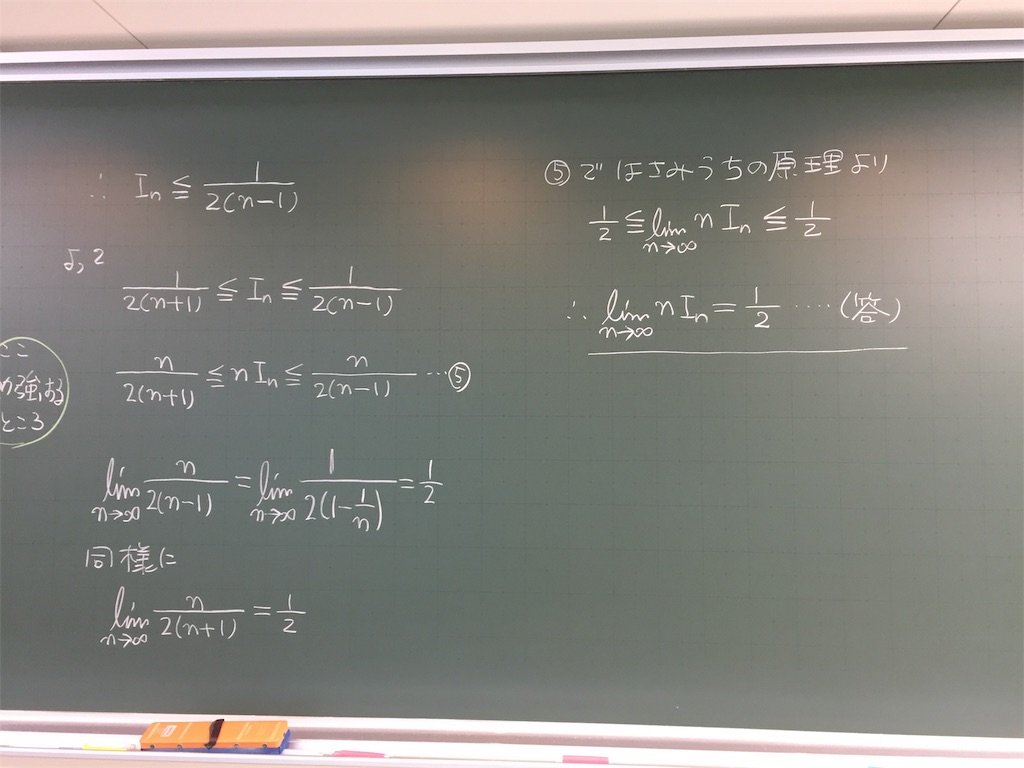 ∴ Iₙ ≦ 1/2(n-1)
よって
1/2(n+1) ≦ Iₙ ≦ 1/2(n-1)
n/2(n+1) ≦ nIₙ ≦ n/2(n-1) …⑤
ここ
勉強する
ところ
lim n→∞ n/2(n-1) = lim n→∞ 1/2(1-1/n) = 1/2
同様に
lim n→∞ n/2(n+1) = 1/2
⑤ではさみうちの原理より
1/2 ≦ lim n→∞ nIₙ ≦ 1/2
∴ lim n→∞ nIₙ = 1/2 ‥‥(答)